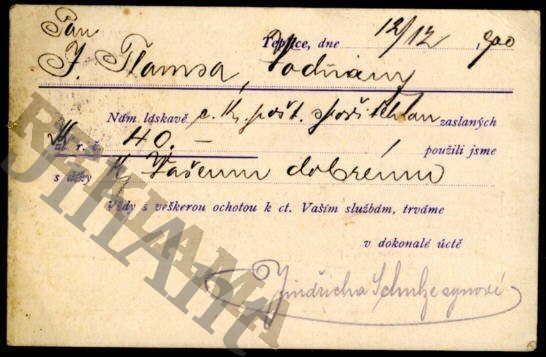 Pan
Teplice, dne 12/12 1900
J. Flamsa, Vodňany
Nám láskavě c. k. pošt. spořitelnou zaslaných
K 40.– použili jsme
s díky K Vašemu dobremu
Vždy s veškerou ochotou k ct. Vašim službám, trváme
v dokonalé úctě
Jindřicha Schulze synové